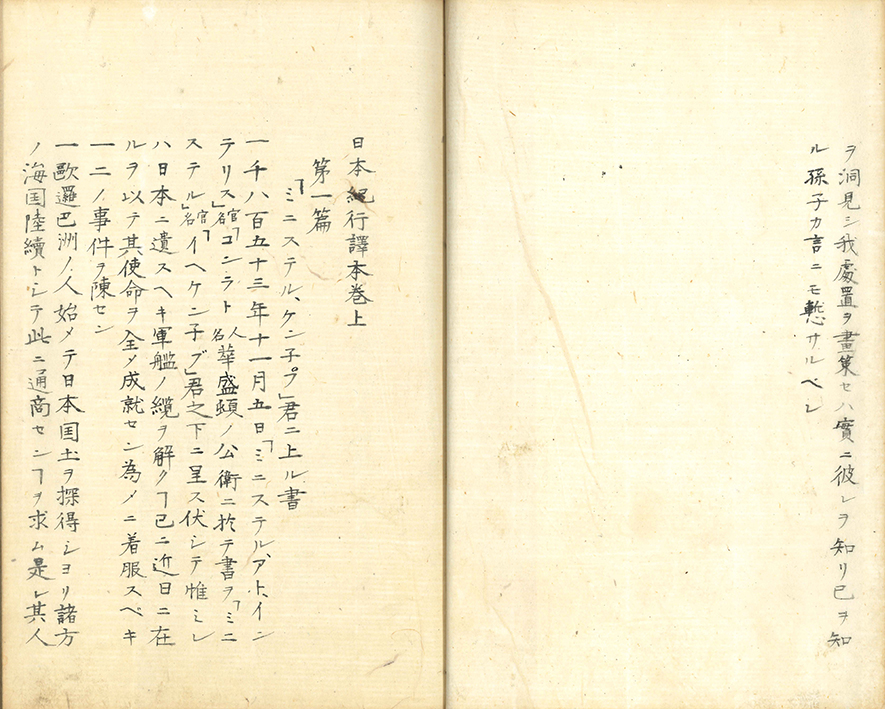 ヲ洞見シ我處置ヲ畫策セハ實ニ彼レヲ知リ已ヲ知
ル孫子カ言ニモ慙サルベシ
日本紀行譯本巻上
第一篇
「ミニステル、ケン子プ」君ニ上ル書
一千八百五十三年十一月五日「ミニステル、アト、イン
テリス」官名「コンラト人名華盛頓ノ公衛ニ於テ書ヲ「ミニ
ステル」官名「イヘケン子プ」君之下ニ呈ス伏シテ惟ミレ
ハ日本ニ遺スヘキ軍艦ノ纜ヲ解クヿ已ニ近日ニ在
ルヲ以テ其使命ヲ全メ成就セン為メニ着服スベキ
一二ノ事件ヲ陳セン
一歐邏巴洲ノ人始メテ日本国土ヲ探得シヨリ諸方
ノ海国陸續トシテ此ニ通商センヿヲ求ム是レ其人